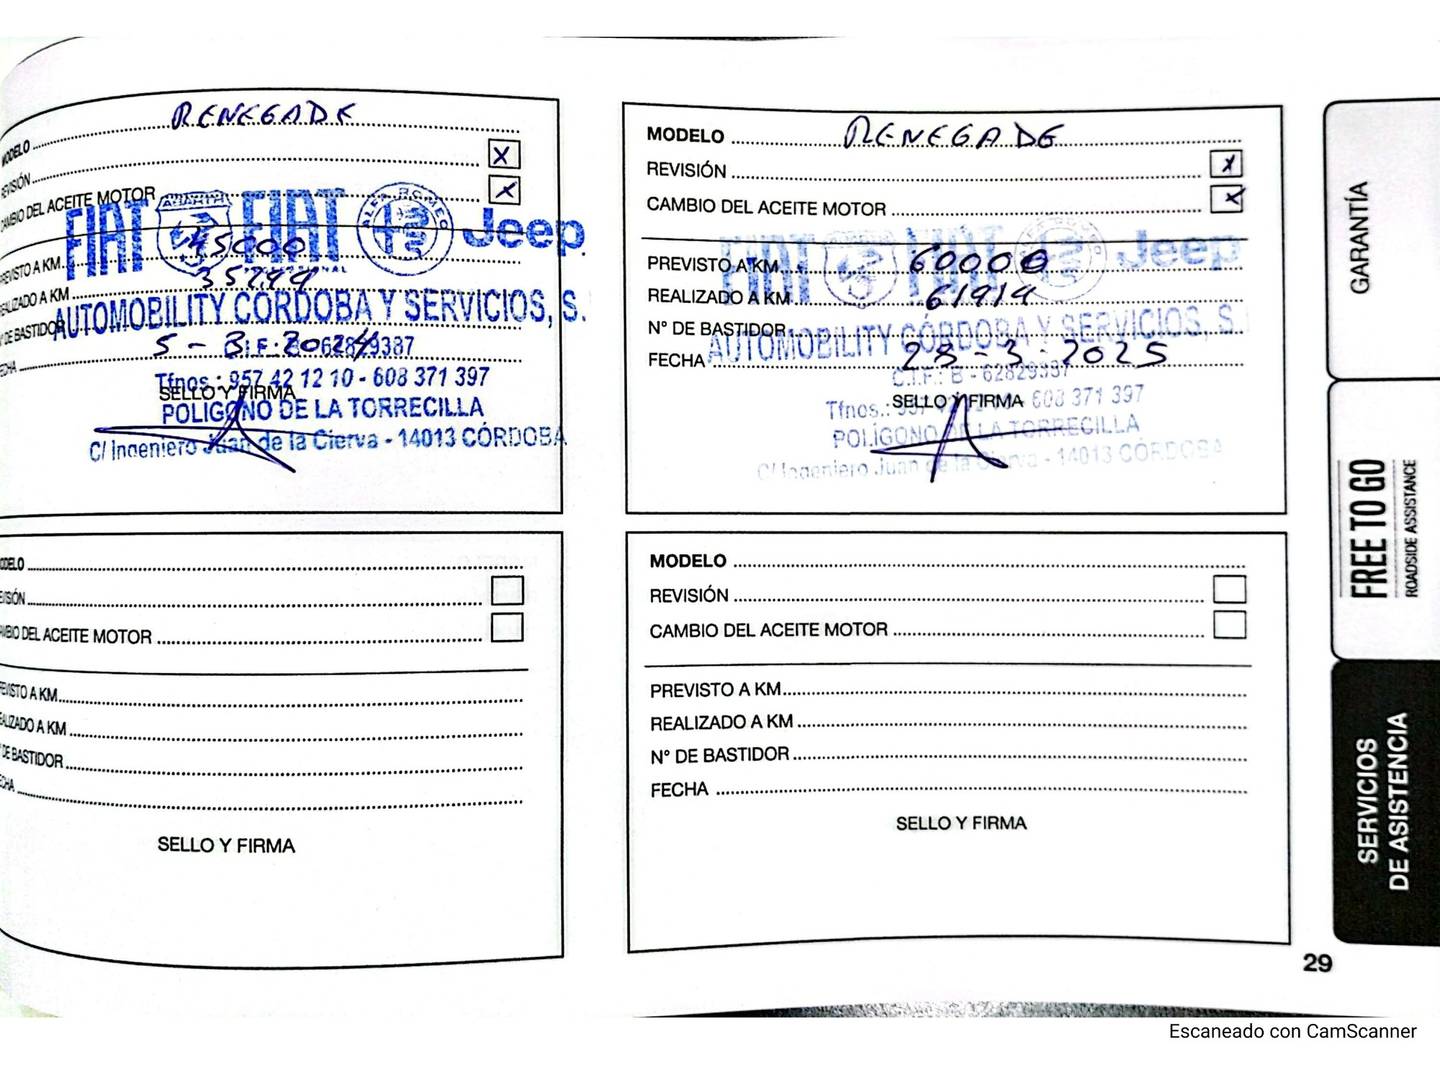 MODELO RENEGADE
REVISIÓN X
CAMBIO DEL ACEITE MOTOR X
FIAT ABARTH FIAT ALFA ROMEO Jeep
PREVISTO A KM 45000
REALIZADO A KM
Nº DE BASTIDOR
AUTOMOBILITY CÓRDOBA Y SERVICIOS, S.
FECHA 5 - 3 - 2024
C.I.F.: B - 62829387
Tfnos.: 957 42 12 10 - 608 371 397
SELLO Y FIRMA
POLIGONO DE LA TORRECILLA
C/ Ingeniero Juan de la Cierva - 14013 CÓRDOBA
MODELO RENEGADE
REVISIÓN X
CAMBIO DEL ACEITE MOTOR X
FIAT FIAT Jeep
PREVISTO A KM 60000
REALIZADO A KM 61914
Nº DE BASTIDOR
AUTOMOBILITY CÓRDOBA Y SERVICIOS, S.
FECHA 28 - 3 - 2025
C.I.F.: B - 62829387
SELLO Y FIRMA
Tfnos.: 957 42 12 10 - 608 371 397
POLÍGONO DE LA TORRECILLA
C/ Ingeniero Juan de la Cierva - 14013 CÓRDOBA
MODELO
REVISIÓN
CAMBIO DEL ACEITE MOTOR
PREVISTO A KM
REALIZADO A KM
Nº DE BASTIDOR
FECHA
SELLO Y FIRMA
MODELO
REVISIÓN
CAMBIO DEL ACEITE MOTOR
PREVISTO A KM
REALIZADO A KM
Nº DE BASTIDOR
FECHA
SELLO Y FIRMA
GARANTÍA
FREE TO GO
ROADSIDE ASSISTANCE
SERVICIOS
DE ASISTENCIA
29
Escaneado con CamScanner